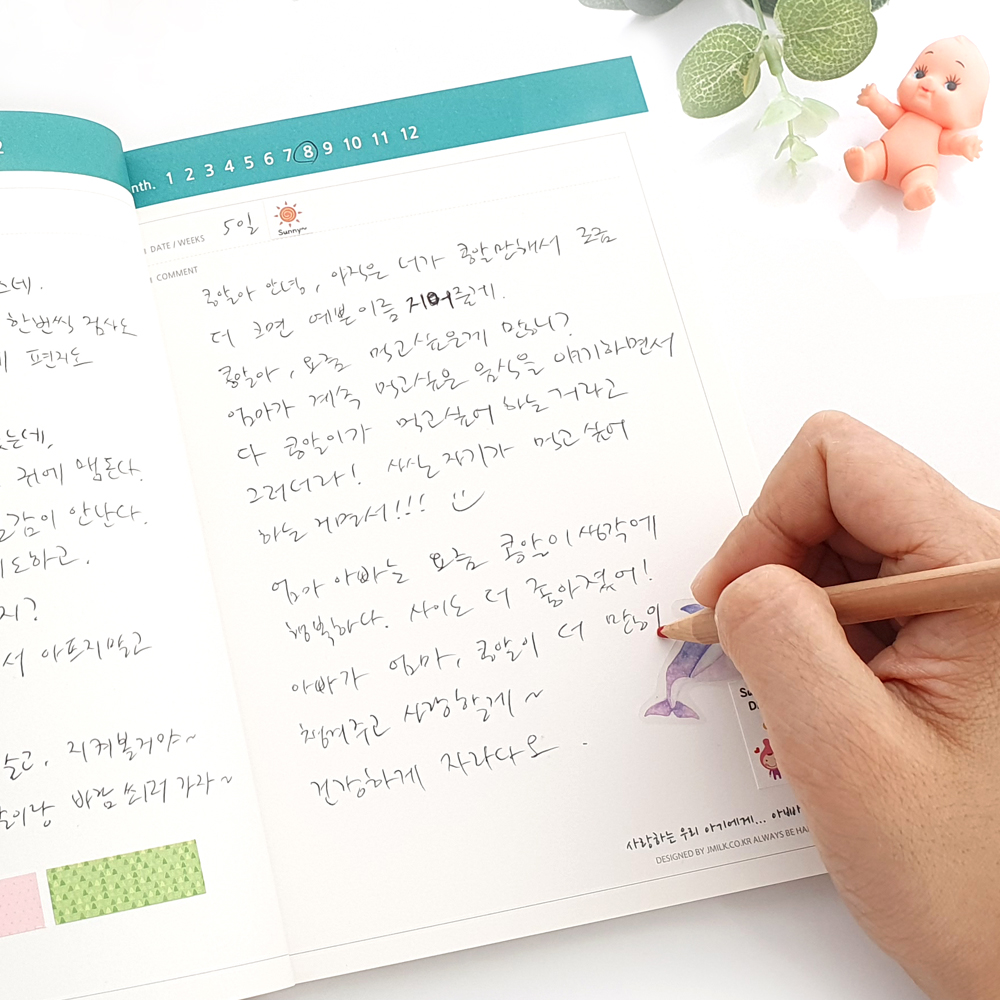 2
스데.
한번씩 검사도
편지도
는데,
귀에 맴돈다.
감이 안난다.
도하고.
지?
서 아프지말고
고, 지켜볼거야~
이랑 바람 쐬러 가자~
nth. 1 2 3 4 5 6 7 8 9 10 11 12
DATE / WEEKS 5일 Sunny~
COMMENT
콩알아 안녕, 아직은 너가 콩알만해서 조금
더 크면 예쁜이름 지어줄게.
콩알아, 요즘 먹고싶은게 많니?
엄마가 계속 먹고싶은 음식을 얘기하면서
다 콩알이가 먹고싶어 하는거라고
그러더라! 사실 자기가 먹고싶어
하는 거면서!!!
엄마 아빠는 요즘 콩알이 생각에
행복하다. 사이도 더 좋아졌어!
아빠가 엄마, 콩알이 더 많이
챙겨주고 사랑할게~
건강하게 자라다오.
사랑하는 우리 아기에게... 아빠
DESIGNED BY JMILK.CO.KR ALWAYS BE HA